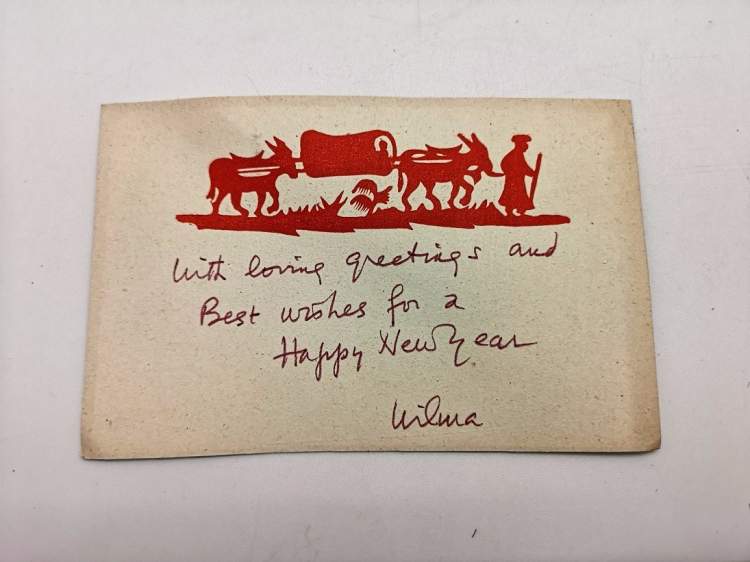 With loving greetings and
Best wishes for a
Happy New Year
Wilma